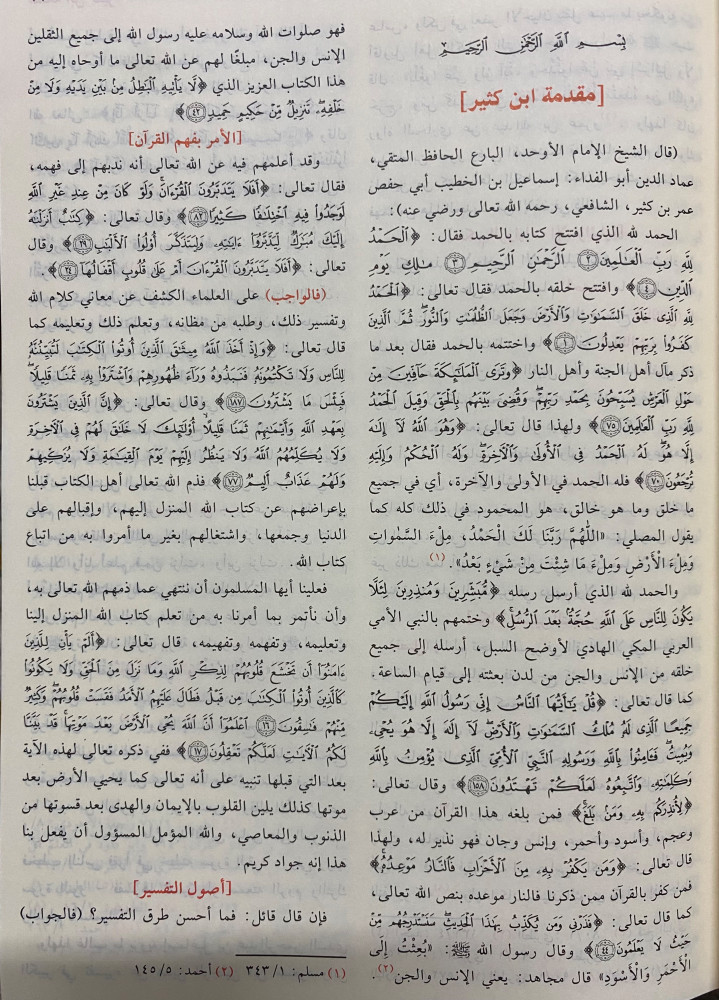 بِسْمِ اللَّهِ الرَّحْمَٰنِ الرَّحِيمِ
[مقدمة ابن كثير]
(قال الشيخ الإمام الأوحد، البارع الحافظ المتقي،
عماد الدين أبو الفداء: إسماعيل بن الخطيب أبي حفص
عمر بن كثير، الشافعي، رحمه الله تعالى ورضي عنه):
الحمد لله الذي افتتح كتابه بالحمد فقال: ﴿ٱلۡحَمۡدُ
لِلَّهِ رَبِّ ٱلۡعَٰلَمِينَ ۝٢ ٱلرَّحۡمَٰنِ ٱلرَّحِيمِ ۝٣ مَٰلِكِ يَوۡمِ
ٱلدِّينِ ۝٤﴾ وافتتح خلقه بالحمد فقال تعالى: ﴿ٱلۡحَمۡدُ
لِلَّهِ ٱلَّذِي خَلَقَ ٱلسَّمَٰوَٰتِ وَٱلۡأَرۡضَ وَجَعَلَ ٱلظُّلُمَٰتِ وَٱلنُّورَۖ ثُمَّ ٱلَّذِينَ
كَفَرُواْ بِرَبِّهِمۡ يَعۡدِلُونَ ۝١﴾ واختتمه بالحمد فقال بعد ما
ذكر مآل أهل الجنة وأهل النار ﴿وَتَرَى ٱلۡمَلَٰٓئِكَةَ حَآفِّينَ مِنۡ
حَوۡلِ ٱلۡعَرۡشِ يُسَبِّحُونَ بِحَمۡدِ رَبِّهِمۡۖ وَقُضِيَ بَيۡنَهُم بِٱلۡحَقِّ وَقِيلَ ٱلۡحَمۡدُ
لِلَّهِ رَبِّ ٱلۡعَٰلَمِينَ ۝٧٥﴾ ولهذا قال تعالى: ﴿وَهُوَ ٱللَّهُ لَآ إِلَٰهَ
إِلَّا هُوَۖ لَهُ ٱلۡحَمۡدُ فِي ٱلۡأُولَىٰ وَٱلۡأٓخِرَةِۖ وَلَهُ ٱلۡحُكۡمُ وَإِلَيۡهِ
تُرۡجَعُونَ ۝٧٠﴾ فله الحمد في الأولى والآخرة، أي في جميع
ما خلق وما هو خالق، هو المحمود في ذلك كله كما
يقول المصلي: «اللَّهُمَّ رَبَّنَا لَكَ الْحَمْدُ، مِلْءَ السَّمٰوَاتِ
وَمِلْءَ الْأَرْضِ وَمِلْءَ مَا شِئْتَ مِنْ شَيْءٍ بَعْدُ».(١)
والحمد لله الذي أرسل رسله ﴿مُّبَشِّرِينَ وَمُنذِرِينَ لِئَلَّا
يَكُونَ لِلنَّاسِ عَلَى ٱللَّهِ حُجَّةُۢ بَعۡدَ ٱلرُّسُلِۚ﴾ وختمهم بالنبي الأمي
العربي المكي الهادي لأوضح السبل، أرسله إلى جميع
خلقه من الإنس والجن من لدن بعثته إلى قيام الساعة.
كما قال تعالى: ﴿قُلۡ يَٰٓأَيُّهَا ٱلنَّاسُ إِنِّي رَسُولُ ٱللَّهِ إِلَيۡكُمۡ
جَمِيعًا ٱلَّذِي لَهُۥ مُلۡكُ ٱلسَّمَٰوَٰتِ وَٱلۡأَرۡضِۖ لَآ إِلَٰهَ إِلَّا هُوَ يُحۡيِۦ
وَيُمِيتُۖ فَـَٔامِنُواْ بِٱللَّهِ وَرَسُولِهِ ٱلنَّبِيِّ ٱلۡأُمِّيِّ ٱلَّذِي يُؤۡمِنُ بِٱللَّهِ
وَكَلِمَٰتِهِۦ وَٱتَّبِعُوهُ لَعَلَّكُمۡ تَهۡتَدُونَ ۝١٥٨﴾ وقال تعالى:
﴿لِأُنذِرَكُم بِهِۦ وَمَنۢ بَلَغَۚ﴾ فمن بلغه هذا القرآن من عرب
وعجم، وأسود وأحمر، وإنس وجان فهو نذير له، ولهذا
قال تعالى: ﴿وَمَن يَكۡفُرۡ بِهِۦ مِنَ ٱلۡأَحۡزَابِ فَٱلنَّارُ مَوۡعِدُهُۥۚ﴾
فمن كفر بالقرآن ممن ذكرنا فالنار موعده بنص الله تعالى،
كما قال تعالى: ﴿فَذَرۡنِي وَمَن يُكَذِّبُ بِهَٰذَا ٱلۡحَدِيثِۖ سَنَسۡتَدۡرِجُهُم مِّنۡ
حَيۡثُ لَا يَعۡلَمُونَ ۝٤٤﴾ وقال رسول الله ﷺ: «بُعِثْتُ إِلَى
الْأَحْمَرِ وَالْأَسْوَدِ» قال مجاهد: يعني الإنس والجن(٢).
فهو صلوات الله وسلامه عليه رسول الله إلى جميع الثقلين
الإنس والجن، مبلغًا لهم عن الله تعالى ما أوحاه إليه من
هذا الكتاب العزيز الذي ﴿لَّا يَأۡتِيهِ ٱلۡبَٰطِلُ مِنۢ بَيۡنِ يَدَيۡهِ وَلَا مِنۡ
خَلۡفِهِۦۖ تَنزِيلٞ مِّنۡ حَكِيمٍ حَمِيدٖ ۝٤٢﴾
[الأمر بفهم القرآن]
وقد أعلمهم فيه عن الله تعالى أنه ندبهم إلى فهمه،
فقال تعالى: ﴿أَفَلَا يَتَدَبَّرُونَ ٱلۡقُرۡءَانَۚ وَلَوۡ كَانَ مِنۡ عِندِ غَيۡرِ ٱللَّهِ
لَوَجَدُواْ فِيهِ ٱخۡتِلَٰفٗا كَثِيرٗا ۝٨٢﴾ وقال تعالى: ﴿كِتَٰبٌ أَنزَلۡنَٰهُ
إِلَيۡكَ مُبَٰرَكٞ لِّيَدَّبَّرُوٓاْ ءَايَٰتِهِۦ وَلِيَتَذَكَّرَ أُوْلُواْ ٱلۡأَلۡبَٰبِ ۝٢٩﴾ وقال
تعالى: ﴿أَفَلَا يَتَدَبَّرُونَ ٱلۡقُرۡءَانَ أَمۡ عَلَىٰ قُلُوبٍ أَقۡفَالُهَآ ۝٢٤﴾.
(فالواجب) على العلماء الكشف عن معاني كلام الله
وتفسير ذلك، وطلبه من مظانه، وتعلم ذلك وتعليمه كما
قال تعالى: ﴿وَإِذۡ أَخَذَ ٱللَّهُ مِيثَٰقَ ٱلَّذِينَ أُوتُواْ ٱلۡكِتَٰبَ لَتُبَيِّنُنَّهُۥ
لِلنَّاسِ وَلَا تَكۡتُمُونَهُۥ فَنَبَذُوهُ وَرَآءَ ظُهُورِهِمۡ وَٱشۡتَرَوۡاْ بِهِۦ ثَمَنٗا قَلِيلٗاۖ
فَبِئۡسَ مَا يَشۡتَرُونَ ۝١٨٧﴾ وقال تعالى: ﴿إِنَّ ٱلَّذِينَ يَشۡتَرُونَ
بِعَهۡدِ ٱللَّهِ وَأَيۡمَٰنِهِمۡ ثَمَنٗا قَلِيلًا أُوْلَٰٓئِكَ لَا خَلَٰقَ لَهُمۡ فِي ٱلۡأٓخِرَةِ
وَلَا يُكَلِّمُهُمُ ٱللَّهُ وَلَا يَنظُرُ إِلَيۡهِمۡ يَوۡمَ ٱلۡقِيَٰمَةِ وَلَا يُزَكِّيهِمۡ
وَلَهُمۡ عَذَابٌ أَلِيمٞ ۝٧٧﴾ فذم الله تعالى أهل الكتاب قبلنا
بإعراضهم عن كتاب الله المنزل إليهم، وإقبالهم على
الدنيا وجمعها، واشتغالهم بغير ما أمروا به من اتباع
كتاب الله.
فعلينا أيها المسلمون أن ننتهي عما ذمهم الله تعالى به،
وأن نأتمر بما أمرنا به من تعلم كتاب الله المنزل إلينا
وتعليمه، وتفهمه وتفهيمه، قال تعالى: ﴿أَلَمۡ يَأۡنِ لِلَّذِينَ
ءَامَنُوٓاْ أَن تَخۡشَعَ قُلُوبُهُمۡ لِذِكۡرِ ٱللَّهِ وَمَا نَزَلَ مِنَ ٱلۡحَقِّ وَلَا يَكُونُواْ
كَٱلَّذِينَ أُوتُواْ ٱلۡكِتَٰبَ مِن قَبۡلُ فَطَالَ عَلَيۡهِمُ ٱلۡأَمَدُ فَقَسَتۡ قُلُوبُهُمۡۖ وَكَثِيرٞ
مِّنۡهُمۡ فَٰسِقُونَ ۝١٦ ٱعۡلَمُوٓاْ أَنَّ ٱللَّهَ يُحۡيِ ٱلۡأَرۡضَ بَعۡدَ مَوۡتِهَاۚ قَدۡ بَيَّنَّا
لَكُمُ ٱلۡأٓيَٰتِ لَعَلَّكُمۡ تَعۡقِلُونَ ۝١٧﴾ ففي ذكره تعالى لهذه الآية
بعد التي قبلها تنبيه على أنه تعالى كما يحيي الأرض بعد
موتها كذلك يلين القلوب بالإيمان والهدى بعد قسوتها من
الذنوب والمعاصي، والله المؤمل المسؤول أن يفعل بنا
هذا إنه جواد كريم.
[أصول التفسير]
فإن قال قائل: فما أحسن طرق التفسير؟ (فالجواب)
(١) مسلم: ٣٤٣/١ (٢) أحمد: ١٤٥/٥